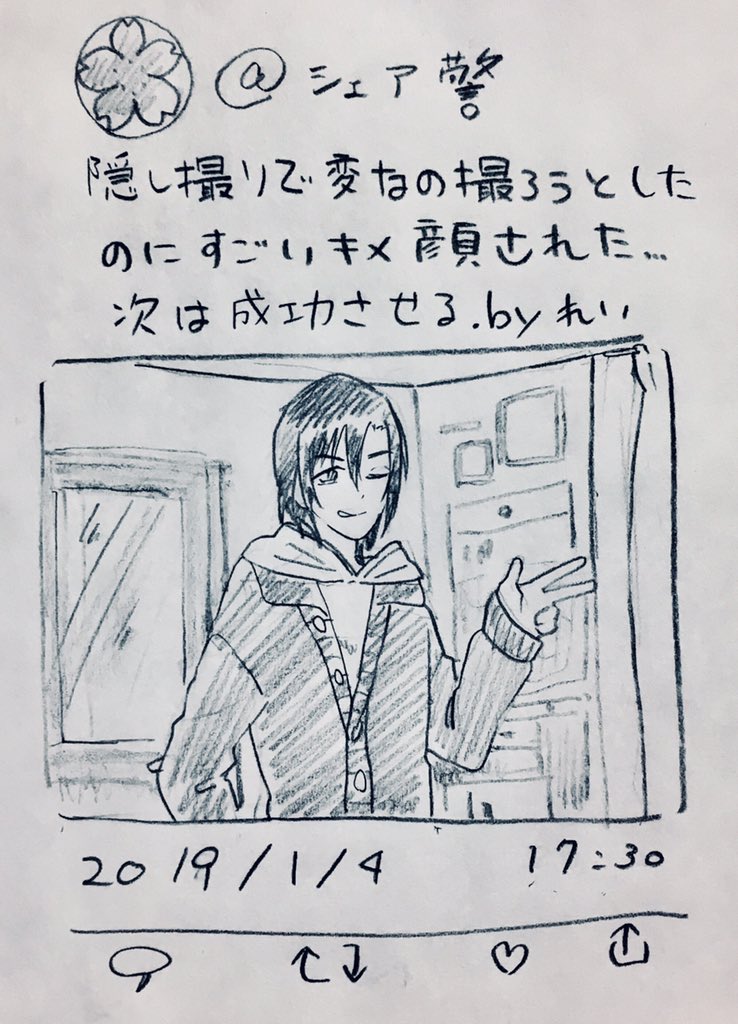 @シェア警
隠し撮りで変なの撮ろうとした
のにすごいキメ顔された...
次は成功させる.byれい
2019/1/4 17:30